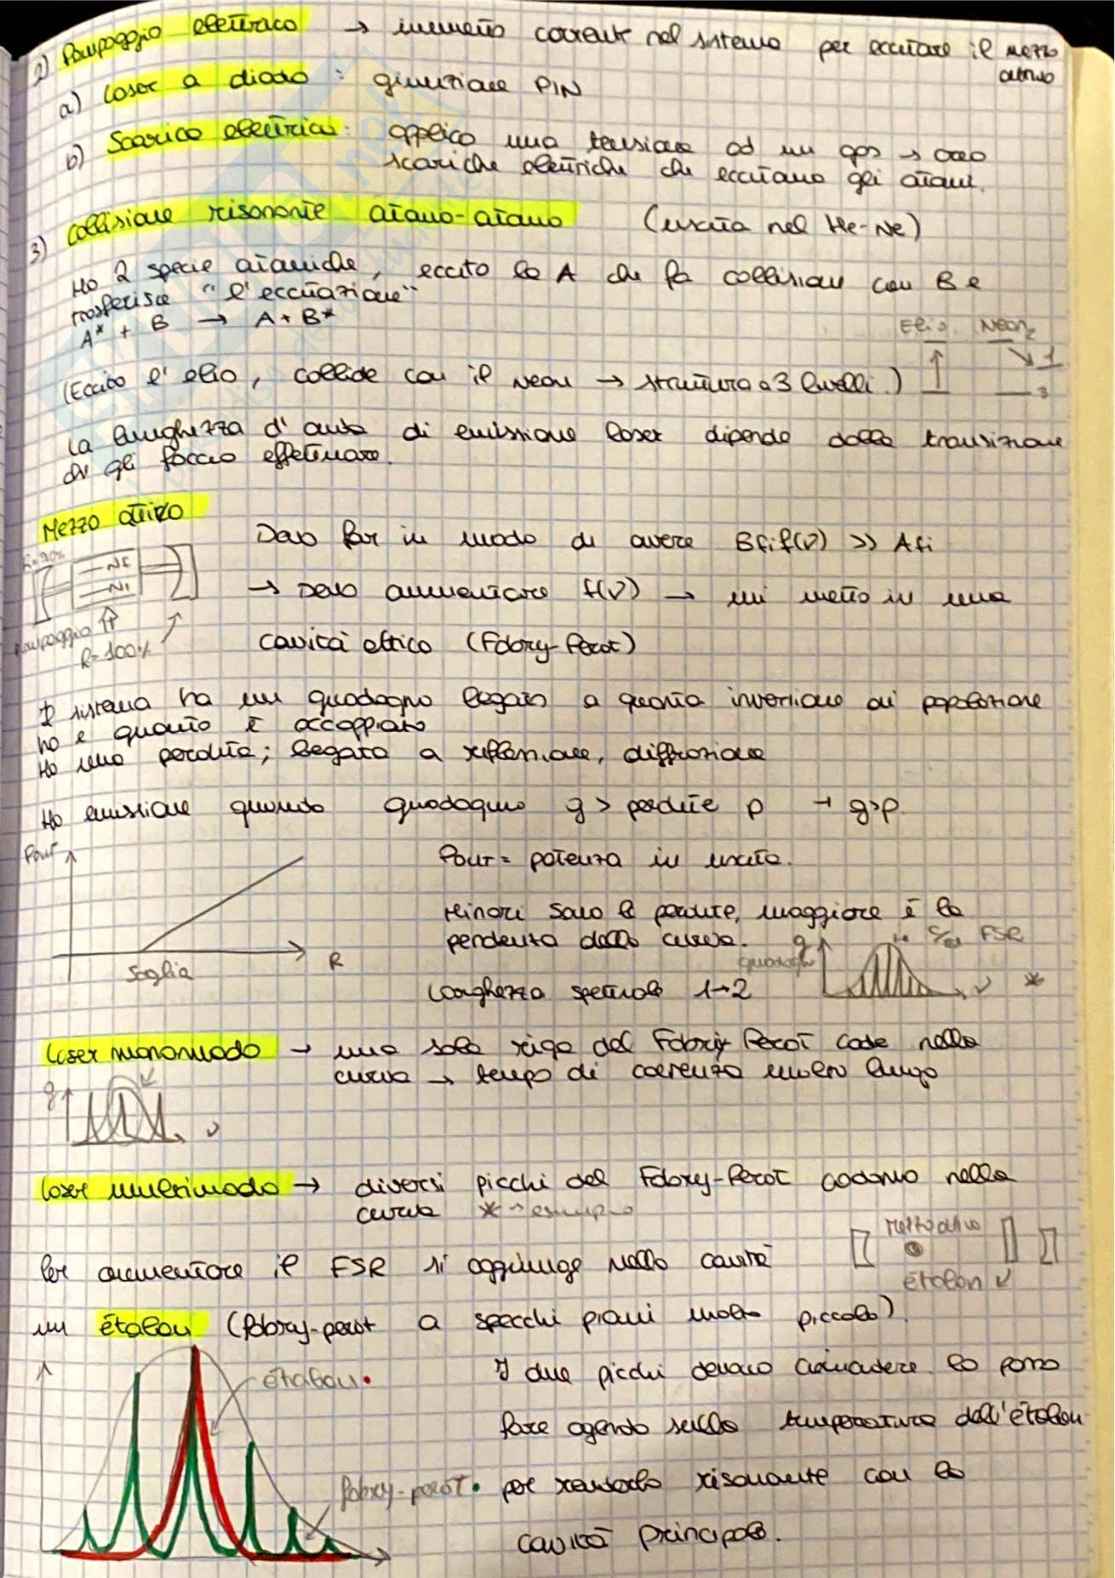 2) Pompaggio elettrico → immetto corrente nel sistema per eccitare il mezzo
attivo
a) Laser a diodo : giunzione PIN
b) Scarica elettrica: applico una tensione ad un gas → creo
scariche elettriche che eccitano gli atomi.
3) Collisione risonante atomo-atomo (usata nel He-Ne)
Ho 2 specie atomiche, eccito la A che fa collisioni con B e
trasferisce "l'eccitazione"
A* + B → A + B*
Elio Neon
(Eccito l'elio, collide con il neon → struttura a 3 livelli.)
1
3
La lunghezza d'onda di emissione laser dipende dalla transizione
che gli faccio effettuare.
Mezzo attivo
R=90%
N2
N1
Pompaggio
R=100%
Devo far in modo di avere Bfif(ν) >> Afi
→ Devo aumentare f(ν) → mi metto in una
cavità ottica (Fabry-Perot)
Il sistema ha un guadagno legato a quanta inversione di popolazione
ho e quanto è accoppiato
Ho una perdita; legata a riflessione, diffrazione
Ho emissione quando guadagno g > perdite p → g>p.
Pout
Soglia
R
Pout = potenza in uscita.
Minori sono le perdite, maggiore è la
pendenza della curva.
g
guadagno
FSR
ν *
Larghezza spettrale 1→2
Laser monomodo → una sola riga del Fabry-Perot cade nella
curva → tempo di coerenza molto lungo
g
ν
Laser multimodo → diversi picchi del Fabry-Perot cadono nella
curva * → esempio
mezzo attivo
étalon
Per aumentare il FSR si aggiunge nella cavità
un étalon (Fabry-perot a specchi piani molto piccolo).
étalon
I due picchi devono coincidere lo posso
fare agendo sulla temperatura dell'étalon
fabry-perot
per renderlo risonante con la
cavità principale.